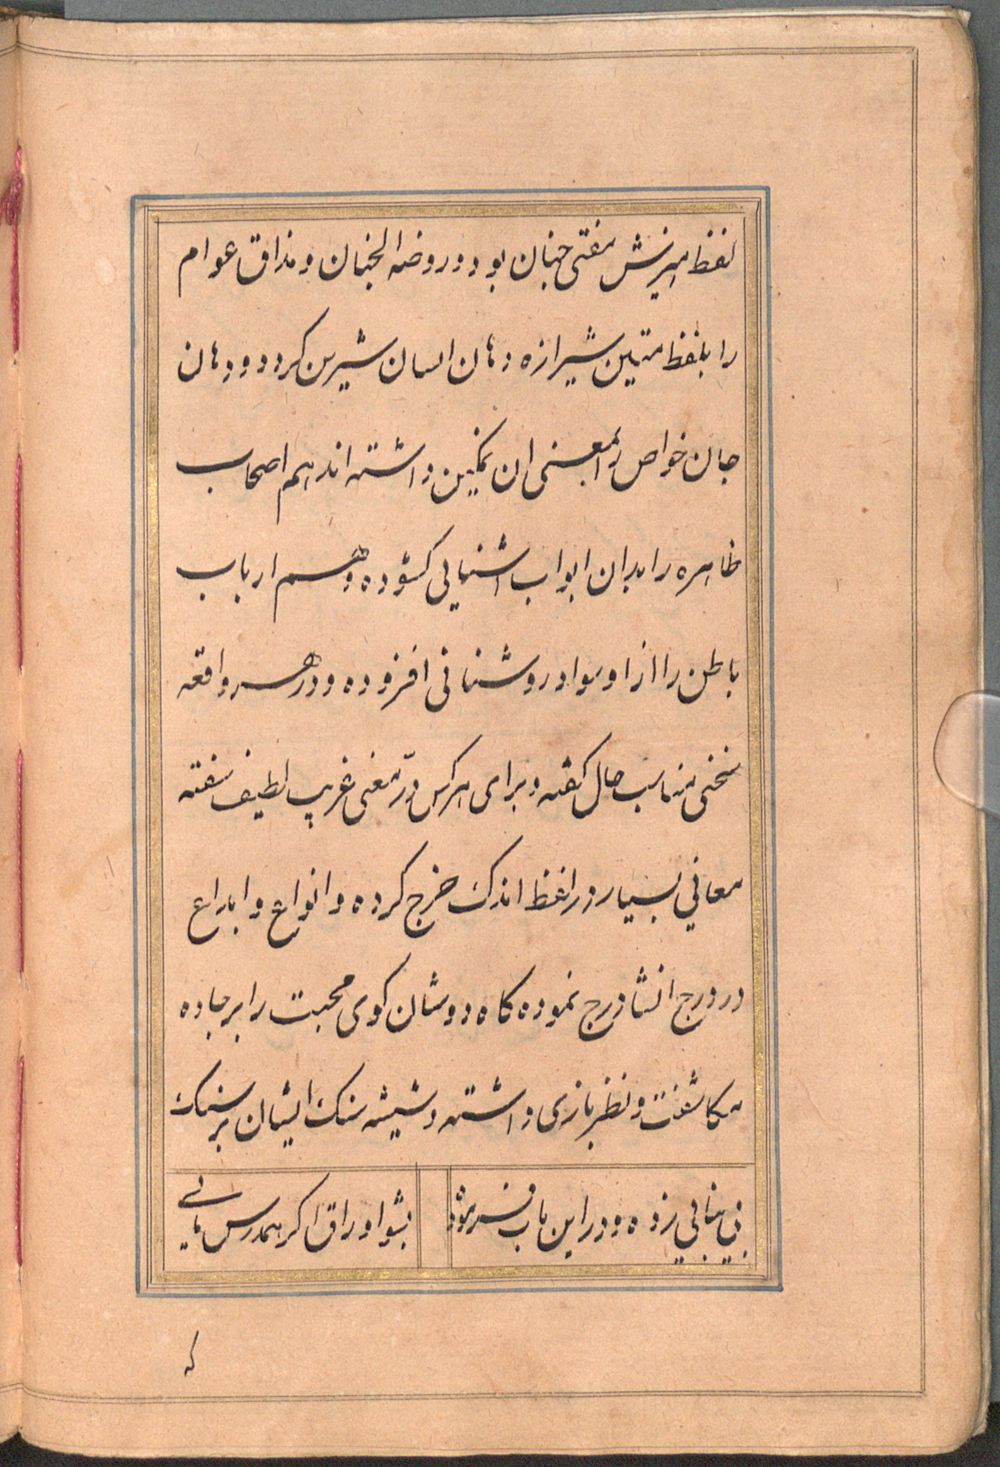 لفظ امیزش مفتی جنان بود و روضه الجنان و مذاق عوام
را بلفظ متین شیرازه دهان لسان شیرین کرد و دهان
جان خواص را بمعنی ان نمکین داشته اند هم اصحاب
ظاهره را بدان ابواب اشنایی کشوده و هم ارباب
باطن را از او سواد روشنائی افزوده و در هر واقعه
سخنی مناسب حال کفته و برای هر کس در معنی غریب لطیف سفته
معانی بسیار در لفظ اندک خرج کرده و انواع و ابداع
در درج انشا درج نموده کاه دوشان کوی محبت را بر جاده
مکاشفت و نظر بازی داشته و شیشه سنک ایشان بر سنک
بی بنایی زده و در این باب فرموده
بشو اوراق اکر همدرس مایی
که